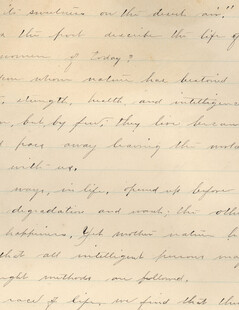 its sweetness on the desert air."
s the poet describe the life of
women of today?
on whom nature has bestowed
, strength, health and intelligence
, but by few; they live because
d pass away leaving the world
with us.
ways, in life, opend up before
degradation and want; the other
happiness. Yet mother nature ha
that all intelligent persons may
ght methods are followed.
race of life, we find that the